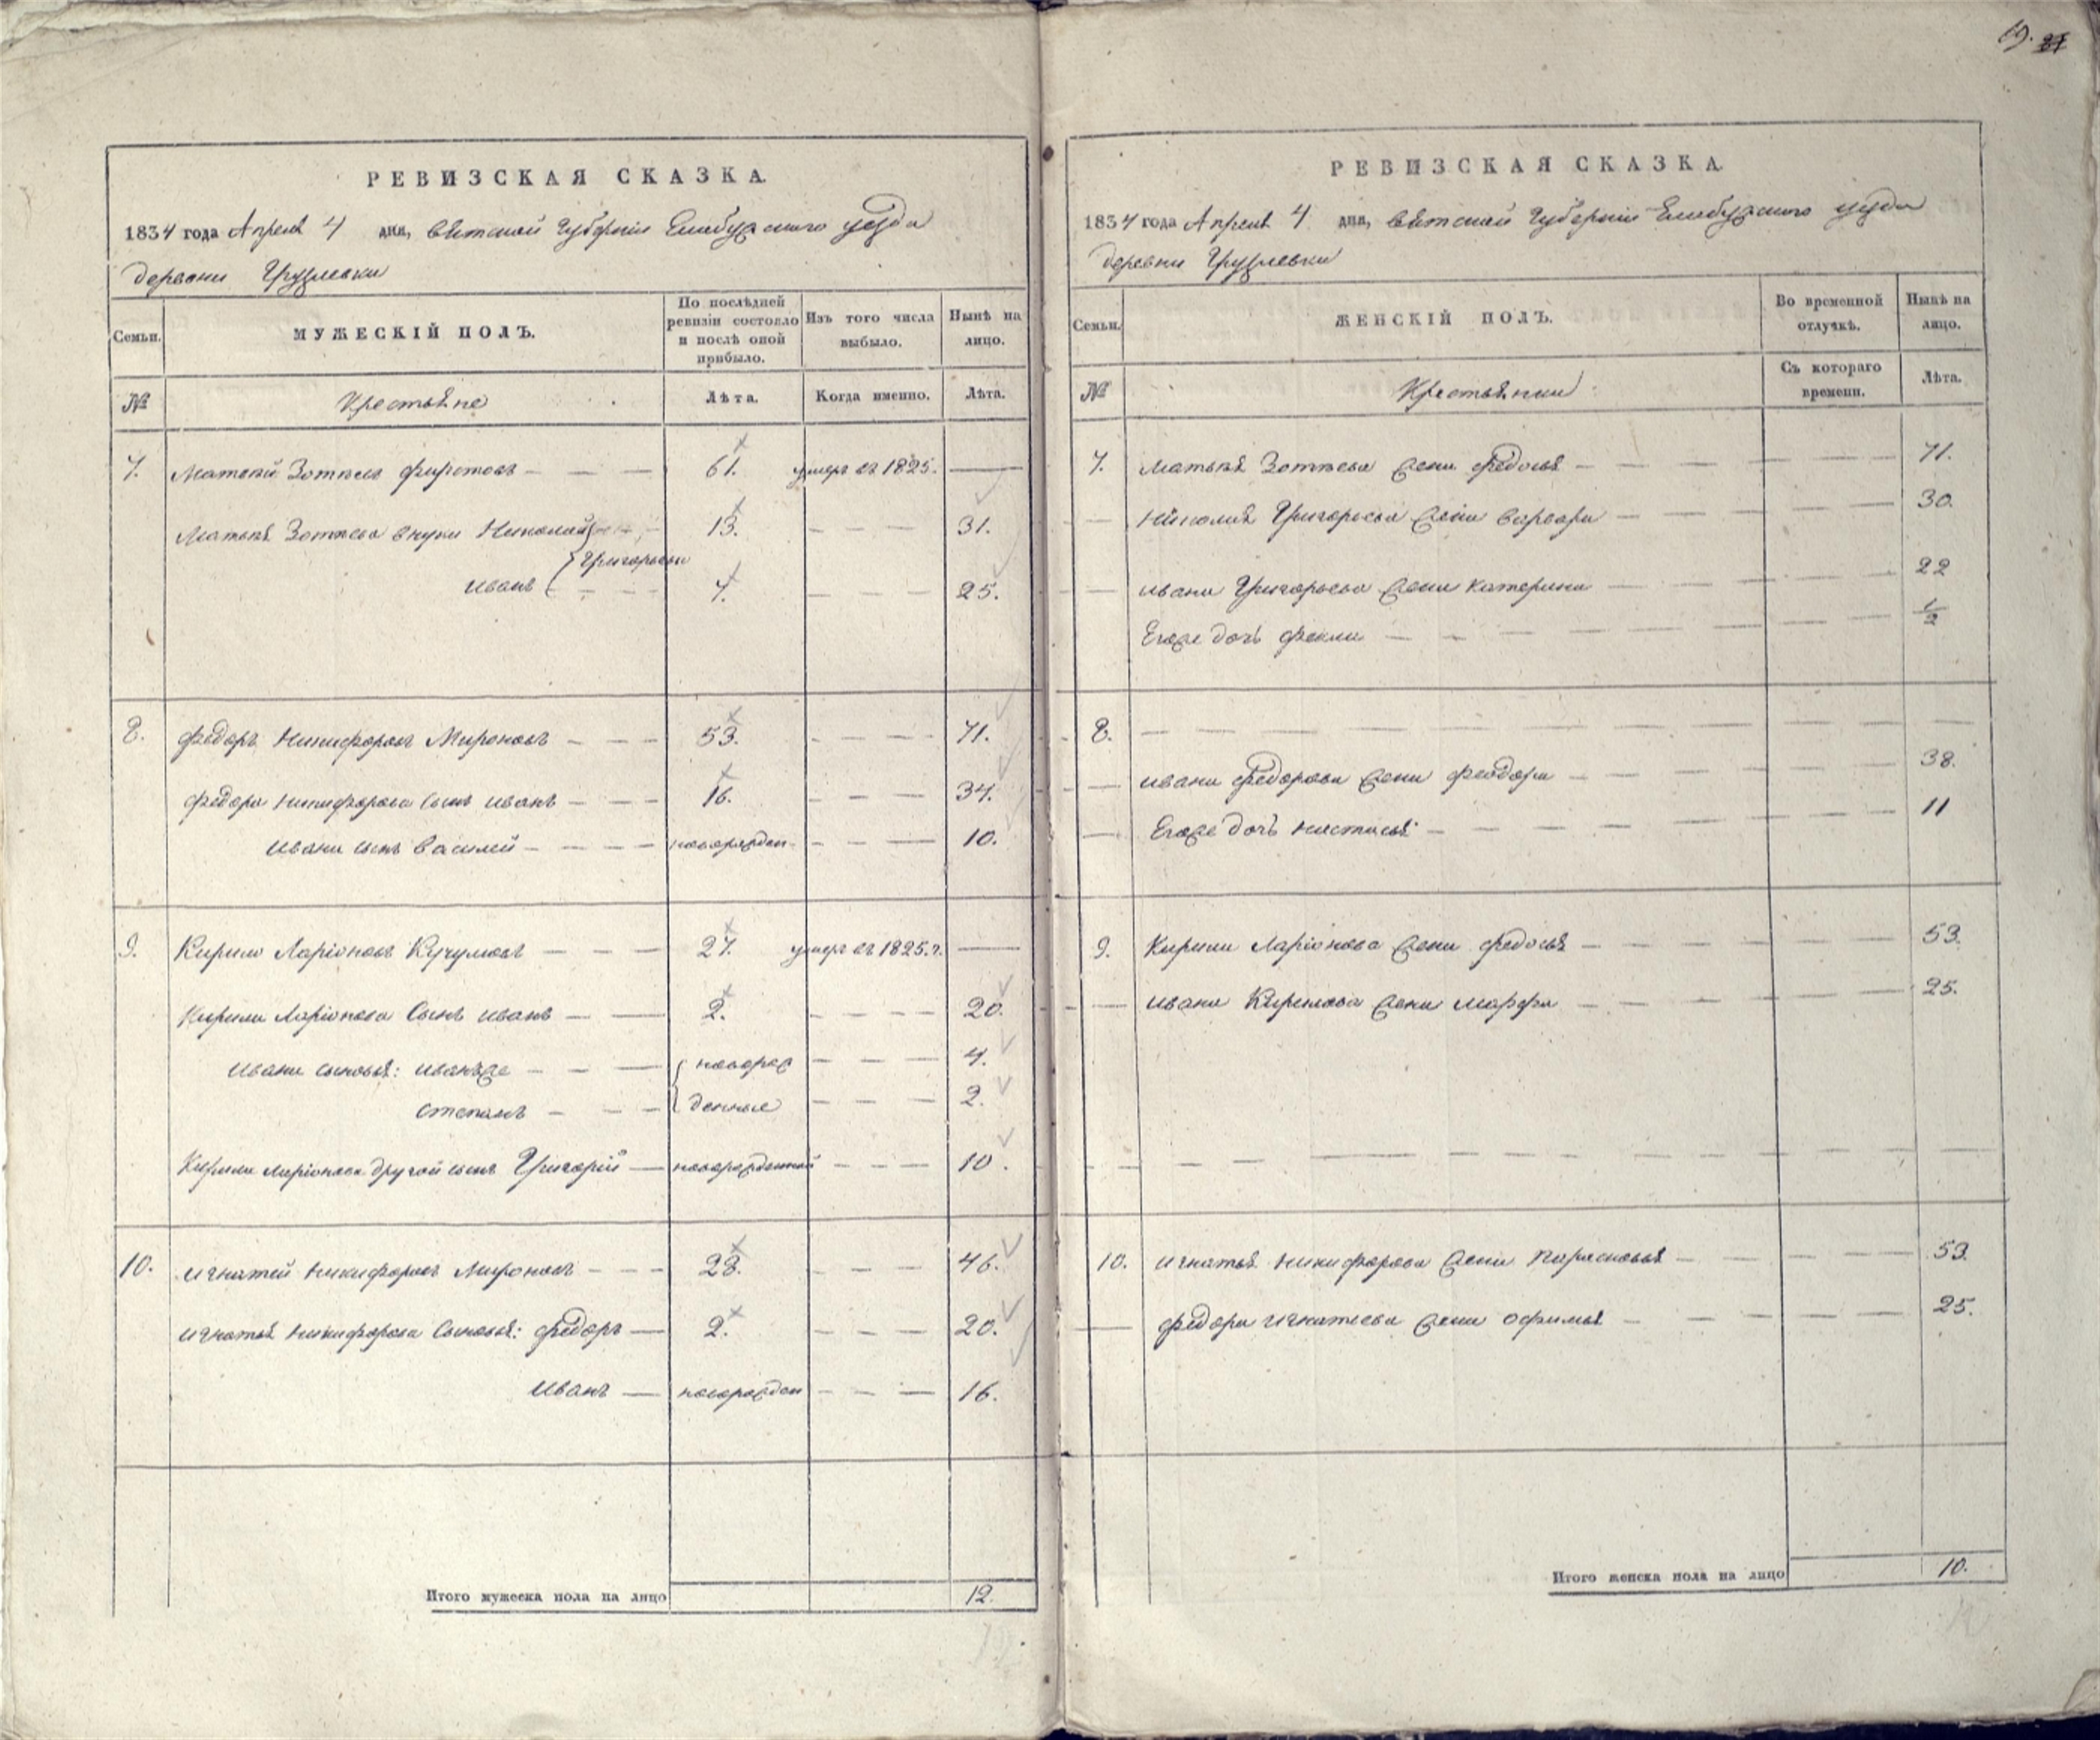 19.
РЕВИЗСКАЯ СКАЗКА.
1834 года Апреля 4 дня, Вятской Губернии Елабужского уезда
деревни Грузлевки
Семьи. МУЖЕСКІЙ ПОЛЪ. По послѣдней ревизіи состояло и послѣ оной прибыло. Изъ того числа выбыло. Нынѣ на лицо.
№ Крестьяне Лѣта. Когда именно. Лѣта.
7. Матвей Зотѣевъ Фирстовъ — — — 61. умеръ въ 1825. —
Матвѣя Зотѣева внуки Николай 13. — — — 31.
Григорьевы
Иванъ — — — 7. — — — 25.
8. Федоръ Никифоровъ Мироновъ — — — 53. — — — 71.
Федора Никифорова сынъ Иванъ — — — 16. — — — 34.
Ивана сынъ Василей — — — — новорожден — — — 10.
9. Кирило Ларіоновъ Кучумовъ — — — 27. умеръ въ 1825. г. —
Кирила Ларіонова Сынъ Иванъ — — 2. — — — — 20.
Ивана сыновья: Иванъ же — — — новорож — — — 4.
Степанъ — — — денные — — — 2.
Кирила Ларіонова другой сынъ Григорій — новорожденной — — — 10.
10. Игнатей Никифоровъ Мироновъ — — — 28. — — — 46.
Игнатья Никифорова Сыновья: Федоръ — 2. — — — 20.
Иванъ — новорожден — — — 16.
Итого мужеска пола на лицо 12.
РЕВИЗСКАЯ СКАЗКА
1834 года Апреля 4 дня, Вятской Губерніи Елабужского уезда
деревни Грузлевки
Семьи. ЖЕНСКІЙ ПОЛЪ. Во временной отлучкѣ. Нынѣ на лицо.
№ Крестьянки Съ котораго времени. Лѣта.
7. Матвѣя Зотѣева жена Федосья — — — — — — 71.
— Николая Григорьева жена Варвара — — — — — 30.
— Ивана Григорьева жена Катерина — — — — — 22
Егоже дочь Фекла — — — — — — 1/2
8. — — — — — — — — — —
— Ивана Федорова жена Феодора — — — — — 38.
— Егоже дочь Настасья — — — — — — 11
9. Кирила Ларіонова жена Федосья — — — — — 53.
— Ивана Кирилова жена Марфа — — — — — 25.
— — — — — — — — — —
10. Игнатья Никифорова жена Парасковья — — — — 53.
— Федора Игнатьева жена Офимья — — — — — 25.
Итого женска пола на лицо 10.